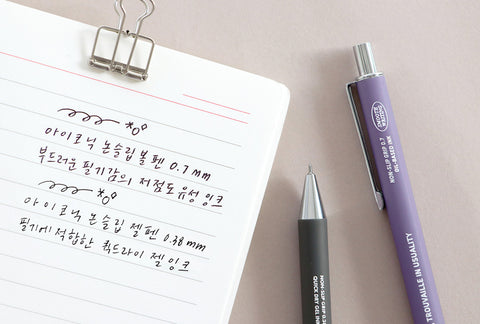 아이코닉 논슬립볼펜 0.7mm
부드러운 필기감의 저점도유성잉크
아이코닉 논슬립 젤펜 0.38mm
필기에적합한 퀵드라이 젤잉크
NON-SLIP GRIP 0.38
QUICK DRY GEL INK
SMOOTH
WRITING
NON-SLIP GRIP 0.7
OIL-BASED INK
TROUVAILLE IN USUALITY